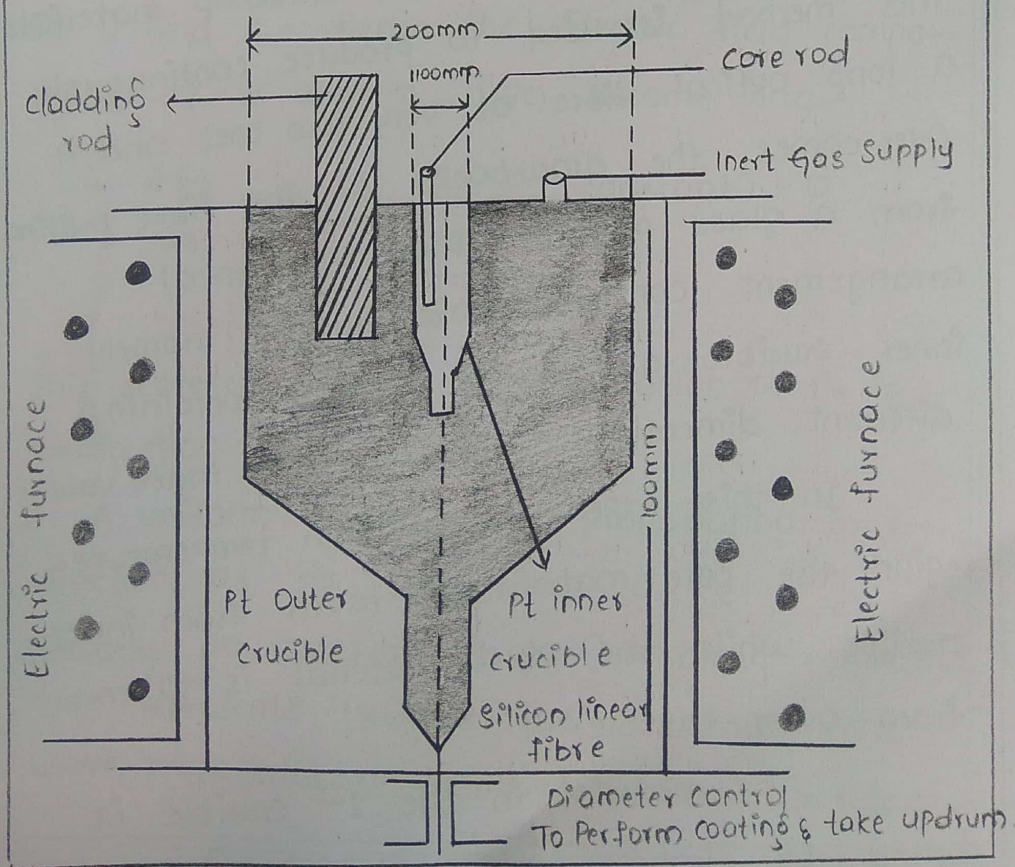 200mm
1100mm
Core rod
Cladding
rod
Inert Gas Supply
Electric furnace
100mm
Electric furnace
Pt Outer
Crucible
Pt inner
Crucible
Silicon linear
fibre
Diameter control
To Perform Coating & take updrum